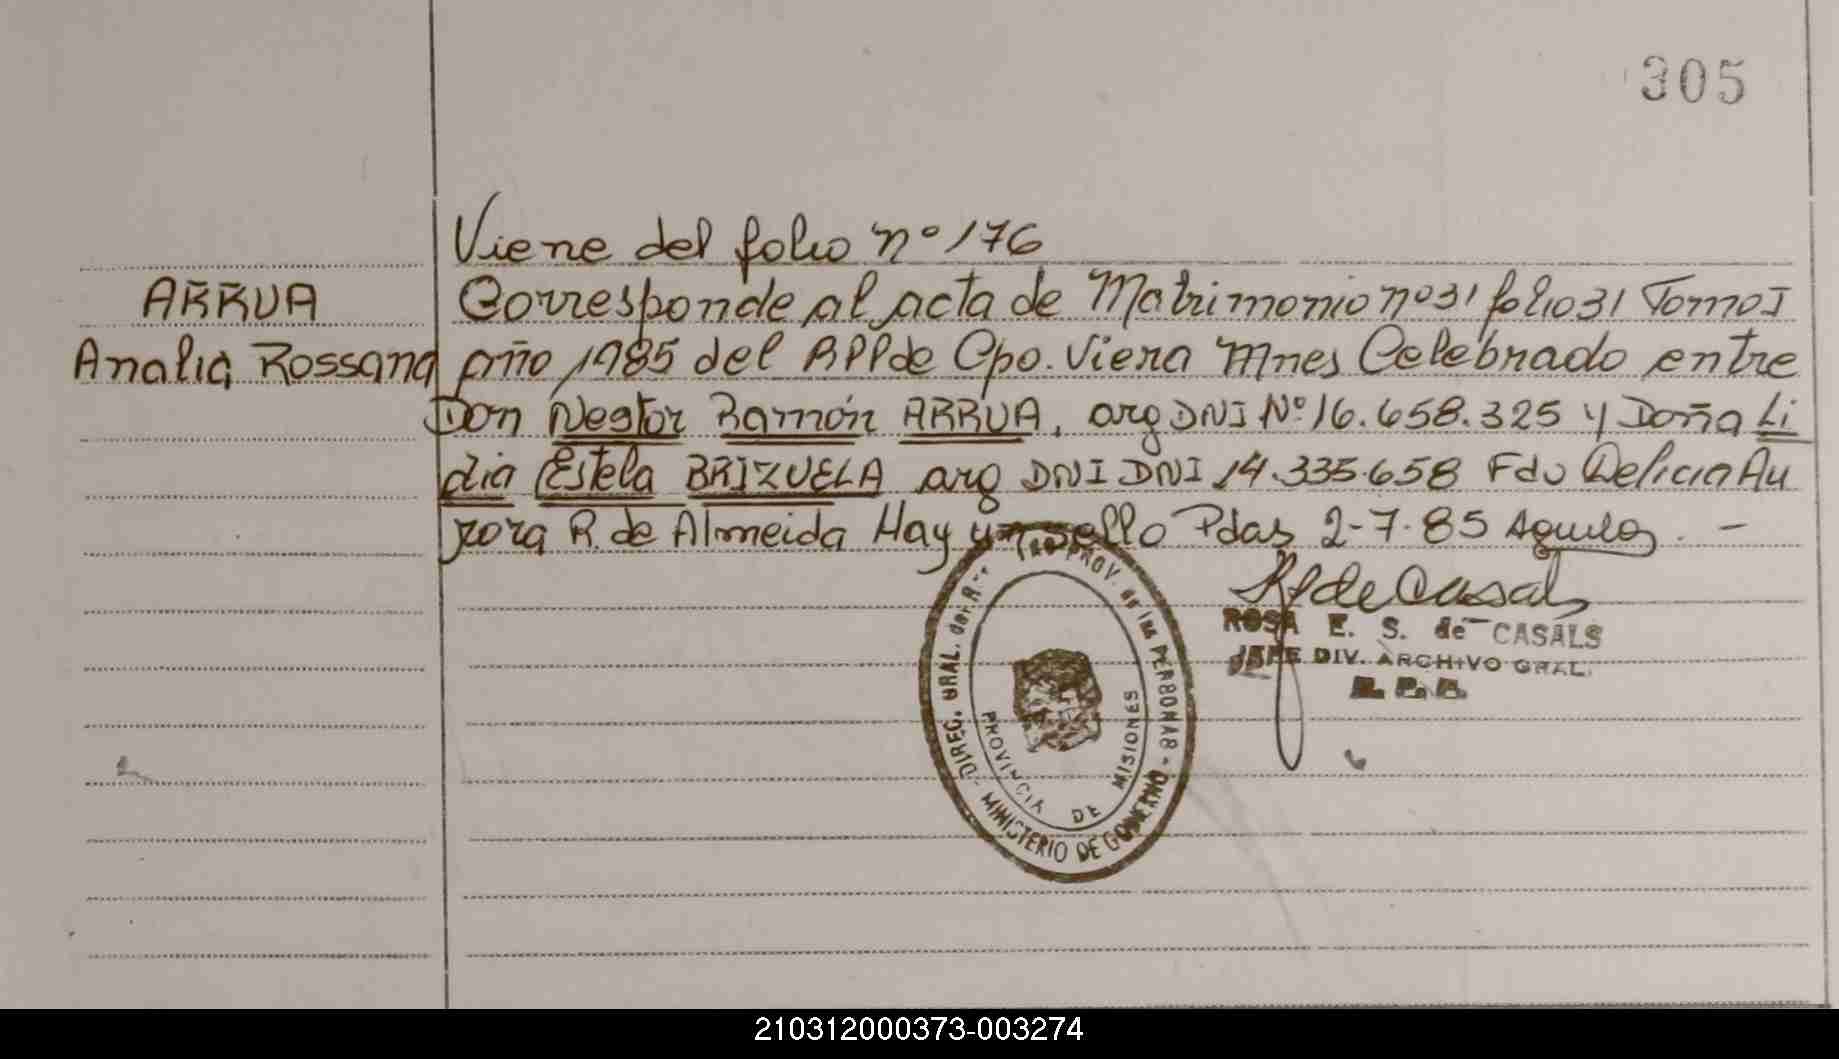 305
Viene del folio nº 176
ARRUA
Corresponde al acta de Matrimonio nº 31 folio 31 Tomo I
Analia Rossana
año 1985 del RPP de Cpo. Viera Mnes Celebrado entre
Don Nestor Ramón ARRUA, arg DNI Nº 16.658.325 y Doña Li
dia Estela BRIZUELA arg DNI DNI 14.335.658 Fdo Delicia Au
rora R. de Almeida Hay un sello Pdas 2-7-85 Aguila. -
ROSA E. S. de CASALS
JEFE DIV. ARCHIVO GRAL.
DIREC. GRAL. del PROV. de las PERSONAS - MINISTERIO DE GOBIERNO -
PROVINCIA DE MISIONES
210312000373-003274